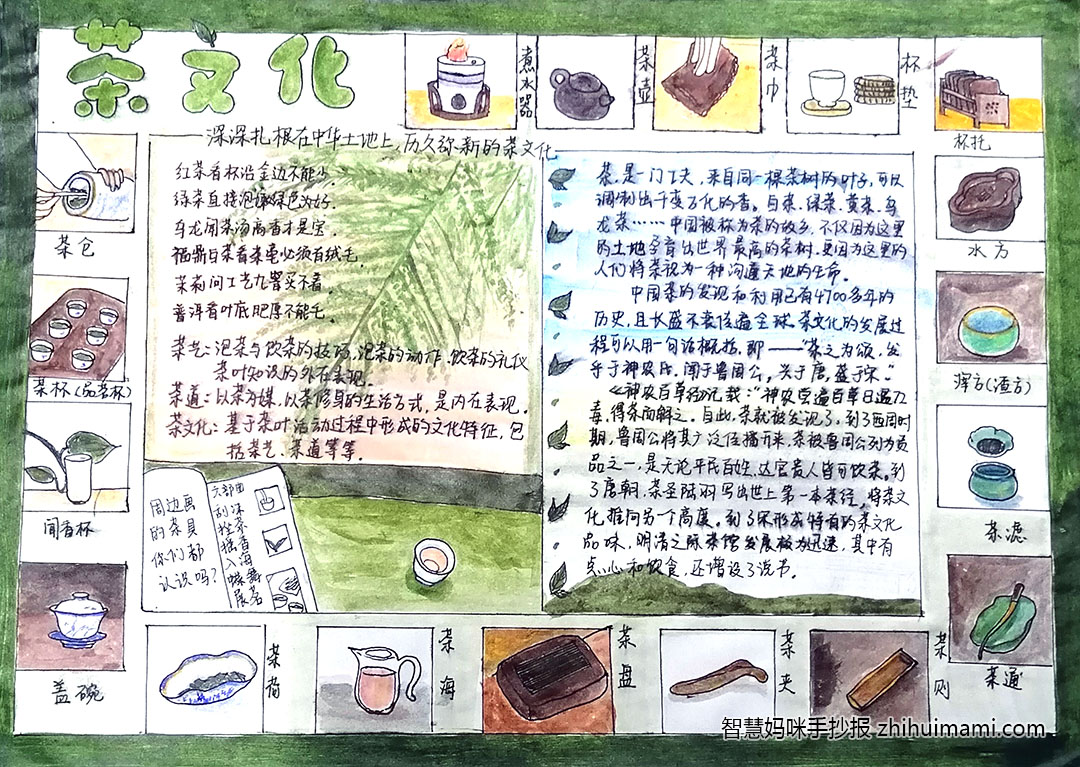 茶文化
煮水器
茶壶
茶巾
杯垫
杯托
深深扎根在中华土地上,历久弥新的茶文化
茶仓
茶杯(品茗杯)
闻香杯
盖碗
红茶看杯沿金边不能少.
绿茶直接泡嫩绿色为好.
乌龙闻茶汤高香才是宝.
福鼎白茶看茶毫必须有绒毛.
茉莉问工艺九窨买不着.
普洱看叶底肥厚不能毛.
茶艺:泡茶与饮茶的技巧,泡茶的动作,饮茶的礼仪
茶叶知识的外在表现.
茶道:以茶为媒,以茶修身的生活方式,是内在表现.
茶文化:基于茶叶活动过程中形成的文化特征,包
括茶艺、茶道等等.
周边画
的茶具
你们都
认识吗?
茶,是一门工夫,来自同一棵茶树的叶子,可以
调制出千变万化的香。白茶、绿茶、黄茶、乌
龙茶……中国被称为茶的故乡,不仅因为这里
的土地孕育出世界最高的茶树,更因为这里的
人们将茶视为一种沟通天地的生命。
中国茶的发现和利用已有4700多年的
历史,且长盛不衰传遍全球.茶文化的发展过
程可以用一句话概括,即——“茶之为饮,发
乎于神农氏,闻于鲁周公,兴于唐,盛于宋.”
《神农百草经记载:“神农尝遍百草日遇72
毒,得茶而解之。自此,茶就被发现了,到了西周时
期,鲁周公将其广泛传播开来,茶被鲁周公列为贡
品之一,是无论平民百姓,达官贵人皆可饮茶。到
了唐朝,茶圣陆羽写出世上第一本茶经,将茶文
化推向另一个高度。到了宋形成特有的茶文化
品味,明清之际茶馆发展极为迅速,其中有
点心和饮食,还增设了说书。
水方
滓方(渣方)
茶滤
茶通
茶荷
茶海
茶盘
茶夹
茶则
智慧妈咪手抄报 zhihuimami.com